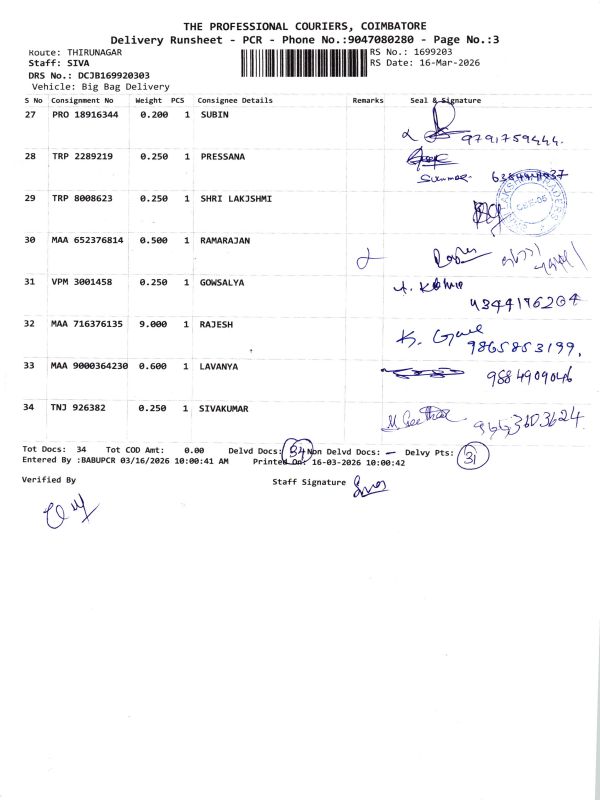 THE PROFESSIONAL COURIERS, COIMBATORE
Delivery Runsheet - PCR - Phone No.:9047080280 - Page No.:3
Route: THIRUNAGAR
RS No.: 1699203
Staff: SIVA
RS Date: 16-Mar-2026
DRS No.: DCJB169920303
Vehicle: Big Bag Delivery
S No Consignment No Weight PCS Consignee Details Remarks Seal & Signature
27 PRO 18916344 0.200 1 SUBIN
9791759444.
28 TRP 2289219 0.250 1 PRESSANA
29 TRP 8008623 0.250 1 SHRI LAKJSHMI
30 MAA 652376814 0.500 1 RAMARAJAN
31 VPM 3001458 0.250 1 GOWSALYA
9344176204
32 MAA 716376135 9.000 1 RAJESH
9865853199.
33 MAA 9000364230 0.600 1 LAVANYA
9884909046
34 TNJ 926382 0.250 1 SIVAKUMAR
9663603624
Tot Docs: 34 Tot COD Amt: 0.00 Delvd Docs: 34 Non Delvd Docs: - Delvy Pts: 31
Entered By :BABUPCR 03/16/2026 10:00:41 AM Printed On: 16-03-2026 10:00:42
Verified By Staff Signature